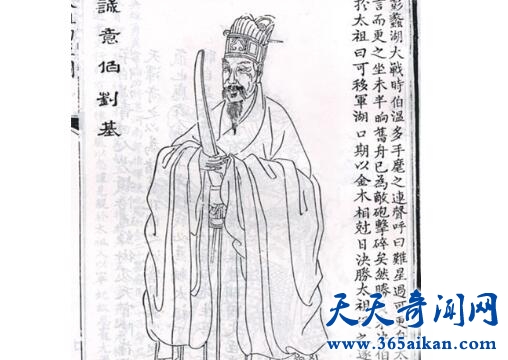 彭蠡湖大戰時伯溫多手麾之連聲呼曰難星過可更太
言而更之坐未半晌舊舟已為敵砲擊碎矣然勝決伯
於太祖曰可移軍湖口期以金木相尅日決勝太祖之遂
誠意伯劉基
天天奇闻网
www.365aikan.com